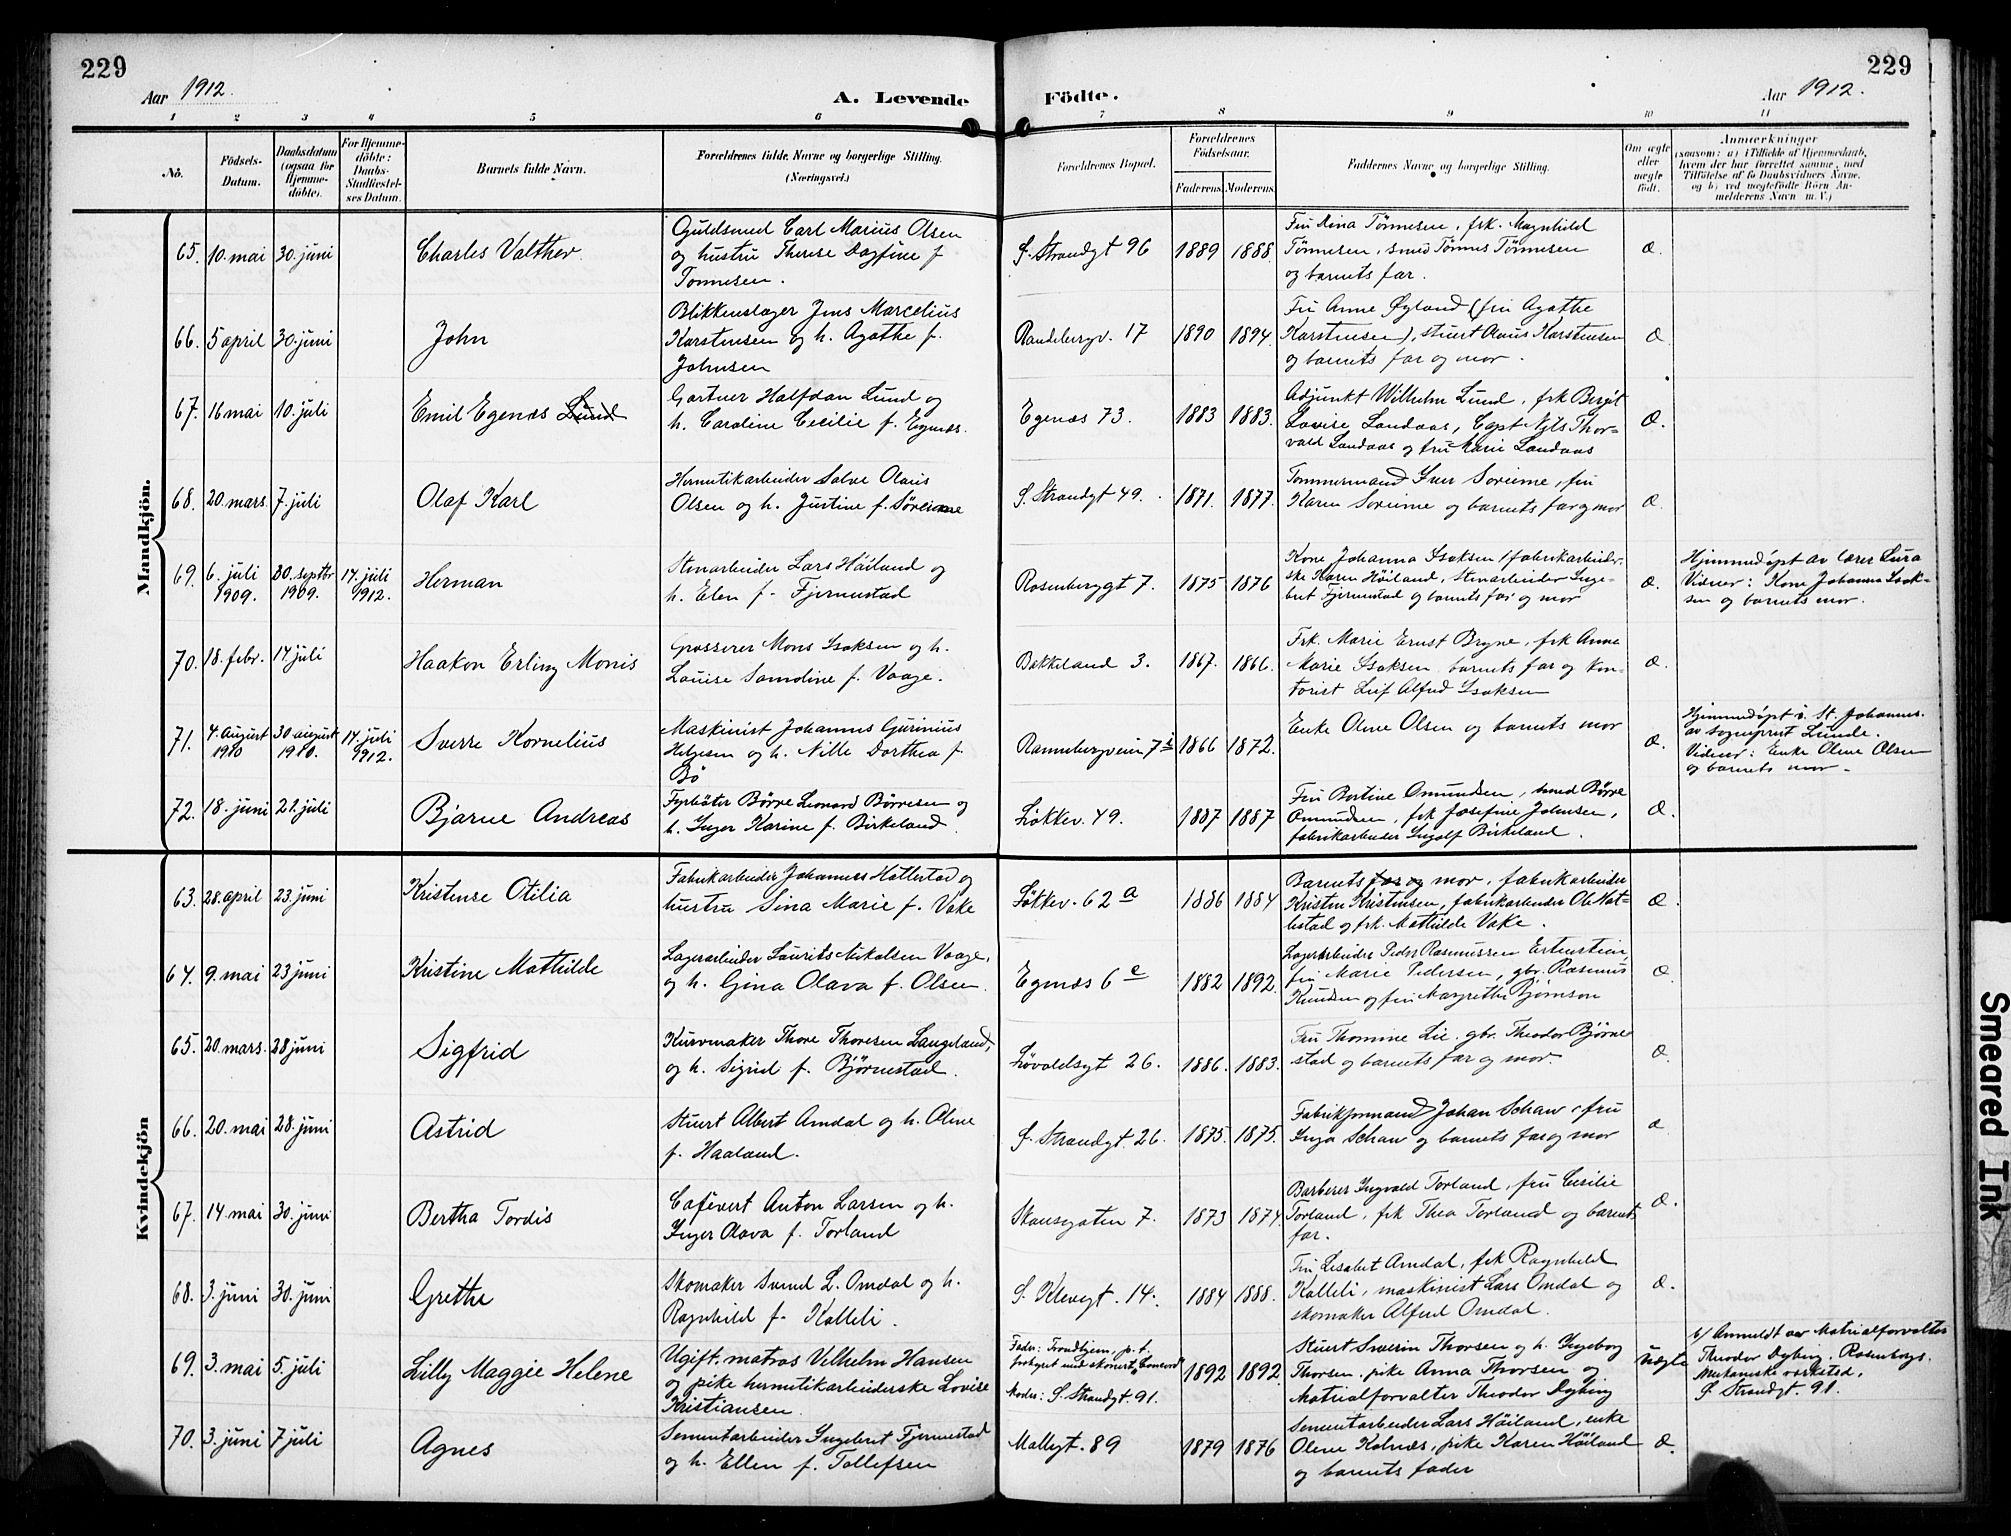 229
Aar 1912.
A. Levende Födte.
229
Aar 1912.
1 2 3 4 5 6 7 8 9 10 11
No.
Födsels-
Datum.
Daabsdatum
(ogsaa for
Hjemme-
döbte).
For Hjemme-
döbte:
Daabs-
Stadfæstel-
ses Datum.
Barnets fulde Navn.
Forældrenes fulde Navne og borgerlige Stilling.
(Næringsvei.)
Forældrenes Bopæl.
Forældrenes
Födselsaar.
Faderens. Moderens.
Faddernes Navne og borgerlige Stilling.
Om ægte
eller
uægte
födt.
Anmærkninger
(saasom: a) i Tilfælde af Hjemmedaab,
hvem der har forrettet samme, med
Tilföielse af to Daabsvidners Navne.
og b) ved uægtefödte Börn An-
melderens Navn m. V.)
Mandkjön.
65. 10. mai 30. juni Charles Valther.
Guldsmed Carl Marius Olsen
og hustru Therese Dagfine f.
Tønnesen.
S. Strandgt 96 1889 1888.
Fru Dina Tønnesen, frk. Magnhild
Tønnesen, smed Tønnes Tønnesen
og barnets far.
Æ.
66. 5 april 30. juni John
Blikkenslager Jens Marcelius
Karstensen og h. Agathe f.
Johnsen
Randebergv. 17 1890 1894.
Fru Anne Øyland (fru Agathe
Karstensen), stuert Olaus Karstensen
og barnets far og mor.
Æ
67. 16 mai 10. juli Emil Egenæs Lund
Gartner Halfdan Lund og
h. Caroline Cecilie f. Egenæs.
Egenæs 73. 1883 1883.
Adjunkt Wilhelm Lund, frk Bergit
Lovise Landaas, Capt Nils Thor-
vald Landaas og fru Marie Landaas
Æ.
68. 20 mars. 7. juli Olaf Karl
Hermetikarbeider Salve Olaus
Olsen og h. Justine f. Søreime
S. Strandgt 49. 1871. 1877.
Tømmermand Iver Soreime, fru
Karen Soreime og barnets far og mor
Æ.
69. 6. juli 1909. 30. septbr 1909. 14. juli 1912. Herman
Stenarbeider Lars Høiland og
h. Elen f. Fjermestad
Rosenberggt 7. 1875 1876
Kone Johanna Isaksen, fabrikarbeider-
ske Karen Høiland, stenarbeider Inge-
bret Fjermestad og barnets far og mor
Æ.
Hjemmedøpt av lærer Lura
Vidner: Kone Johanna Isak-
sen og barnets mor.
70. 18. febr. 14 juli Haakon Erling Monis
Grosserer Mons Isaksen og h.
Louise Samoline f. Vaage.
Bakkeland 3. 1867. 1866.
Frk. Marie Ernst Bryne, frk Anna
Marie Isaksen, barnets far og kon-
torist Leif Alfred Isaksen
Æ.
71. 4. august 1910 30 august 1910. 14. juli 1912. Sverre Kornelius
Maskinist Johannes Gurinius
Helgesen og h. Nille Dorthea f.
Bø
Rannebergveien 7 1866 1872.
Enke Oline Olsen og barnets mor
Æ.
Hjemmedøpt i St. Johannes.
av sogneprest Lunde.
Vidner: Enke Oline Olsen
og barnets mor.
72. 18. juni 21. juli Bjarne Andreas
Fyrbøter Børre Leonard Børresen og
h. Inger Karine f. Birkeland.
Løkkev. 49. 1887 1887
Fru Bertine Omundsen, smed Børre
Omundsen, frk Josefine Johnsen,
fabrikarbeider Ingolf Birkeland.
Æ.
Kvindekjön
63. 28. april 23. juni Kristense Otilia
Fabrikarbeider Johannes Hattestad og
hustru Sina Marie f. Vake
Løkkev. 62 a 1886 1884
Barnets far og mor, fabrikarbeider
Kristen Kristensen, fabrikarbeider Ole Hat-
testad og frk. Mathilde Vake.
Æ.
64. 9. mai 23 juni Kristine Mathilde
Lagerarbeider Laurits Nikolsen Vaage,
og h. Gina Olava f. Olsen.
Egenæs 6 e 1882 1892.
Lagerarbeider Peder Rasmussen Ertenstein,
fru Marie Pedersen, gbr. Rasmus
Knudsen og fru Margrethe Bjørnson
Æ
65. 20. mars. 28 juni Sigfrid
Kurvmaker Thore Thoresen Langeland,
og h. Sigrid f. Bjørnestad.
Løvoldsgt 26. 1886. 1883.
Fru Thomine Lie, gbr. Theodor Bjørne
stad og barnets far og mor.
Æ.
66. 20. mai 28. juni Astrid
Stuert Albert Amdal og h. Oline
f. Haaland.
S. Strandgt. 26. 1875. 1875.
Fabrikformand Johan Schaw, fru
Inga Schaw og barnets far og mor
Æ
67. 14 mai 30. juni Bertha Tordis
Cafévert Anton Larsen og h.
Inger Olava f. Torland
Skansegaten 7. 1873 1874
Barberer Ingvald Torland, fru Cecilie
Torland, frk Thea Torland og barnets
far.
Æ.
68. 3. juni 30. juni Grethe
Skomaker Svend L. Omdal og h.
Ragnhild f. Kalleli.
S. Velevgt. 14. 1884 1888.
Fru Lisabet Amdal, frk Ragnhild
Kalleli, maskinist Lars Omdal og
skomaker Alfred Omdal.
Æ.
69. 3. mai 5. juli Lilly Maggie Helene
Ugift. matros Vilhelm Hansen
og pike hermetikarbeiderske Lovise
Kristiansen
Fader: Trondhjem, p. t.
forhyret med skonert Concord
Moder: S. Strandgt. 91. 1892 1892.
Stuert Severin Thorsen og h. Ingeborg
Thorsen, pike Anna Thorsen og
Matrialforvalter Theodor Dybing
Uægte
b/ Anmeldt av Matrialforvalter
Theodor Dybing. Rosenbergs.
Mekaniske værksted,
S. Strandgt. 91.
70. 3. juni 7 juli Agnes
Sementarbeider Ingebret Fjermestad
og h. Ellen f. Tollefsen
Møllegt. 89 1879 1876
Sementarbeider Lars Høiland, enke
Oline Kolnes, pike Karen Høiland
og barnets fader
Æ.
Smeared Ink